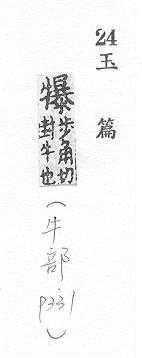 24
玉篇
犦步角切
封牛也
(牛部
P331)